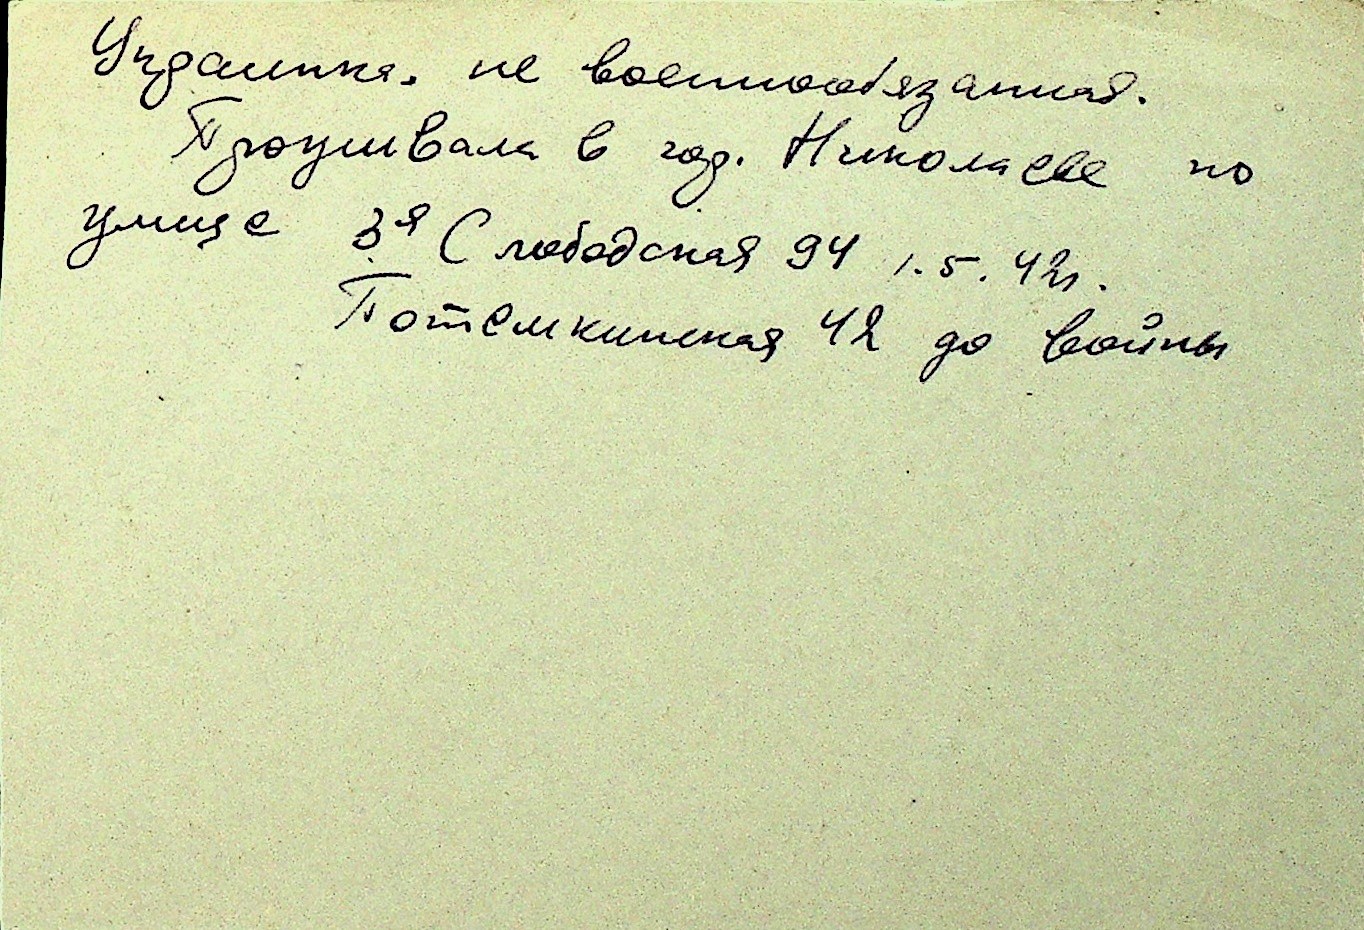 Украинка. не военнообязанная.
Проживала в гор. Николаеве по
улице 3я Слободская 94 1.5.42г.
Потемкинская 42 до войны